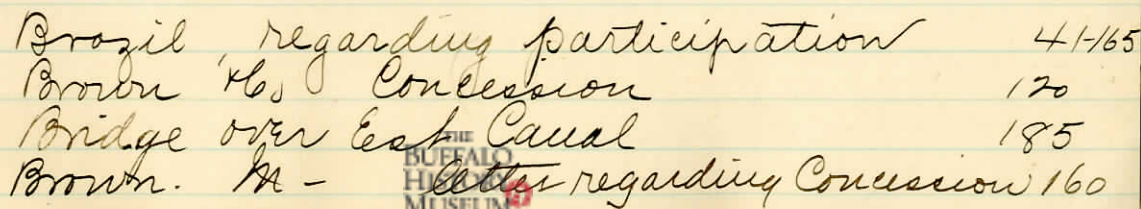 Brazil, regarding participation 41-165
Brown H, Concession 120
Bridge over East Canal 185
Brown. M - letter regarding Concession 160
THE BUFFALO HISTORY MUSEUM